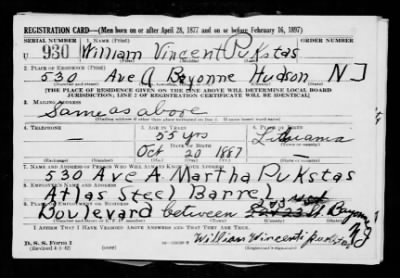 REGISTRATION CARD—(Men born on or after April 28, 1877 and on or before February 16, 1897)
SERIAL NUMBER 1. NAME (Print)
U 930 William Vincent Pukstas
2. PLACE OF RESIDENCE (Print)
530 Ave A Bayonne Hudson NJ
[THE PLACE OF RESIDENCE GIVEN ON THE LINE ABOVE WILL DETERMINE LOCAL BOARD
JURISDICTION; LINE 2 OF REGISTRATION CERTIFICATE WILL BE IDENTICAL]
3. MAILING ADDRESS
Same as above
4. TELEPHONE 5. AGE IN YEARS 6. PLACE OF BIRTH
55 yrs
DATE OF BIRTH
Oct 20 1887
7. NAME AND ADDRESS OF PERSON WHO WILL ALWAYS KNOW YOUR ADDRESS
530 Ave A Martha Pukstas
8. EMPLOYER'S NAME AND ADDRESS
Atlas Steel Barrel
9. PLACE OF EMPLOYMENT OR BUSINESS
Boulevard between
I AFFIRM THAT I HAVE VERIFIED ABOVE ANSWERS AND THAT THEY ARE TRUE.
D. S. S. Form 1
(Revised 4-1-42)
William Vincent Pukstas